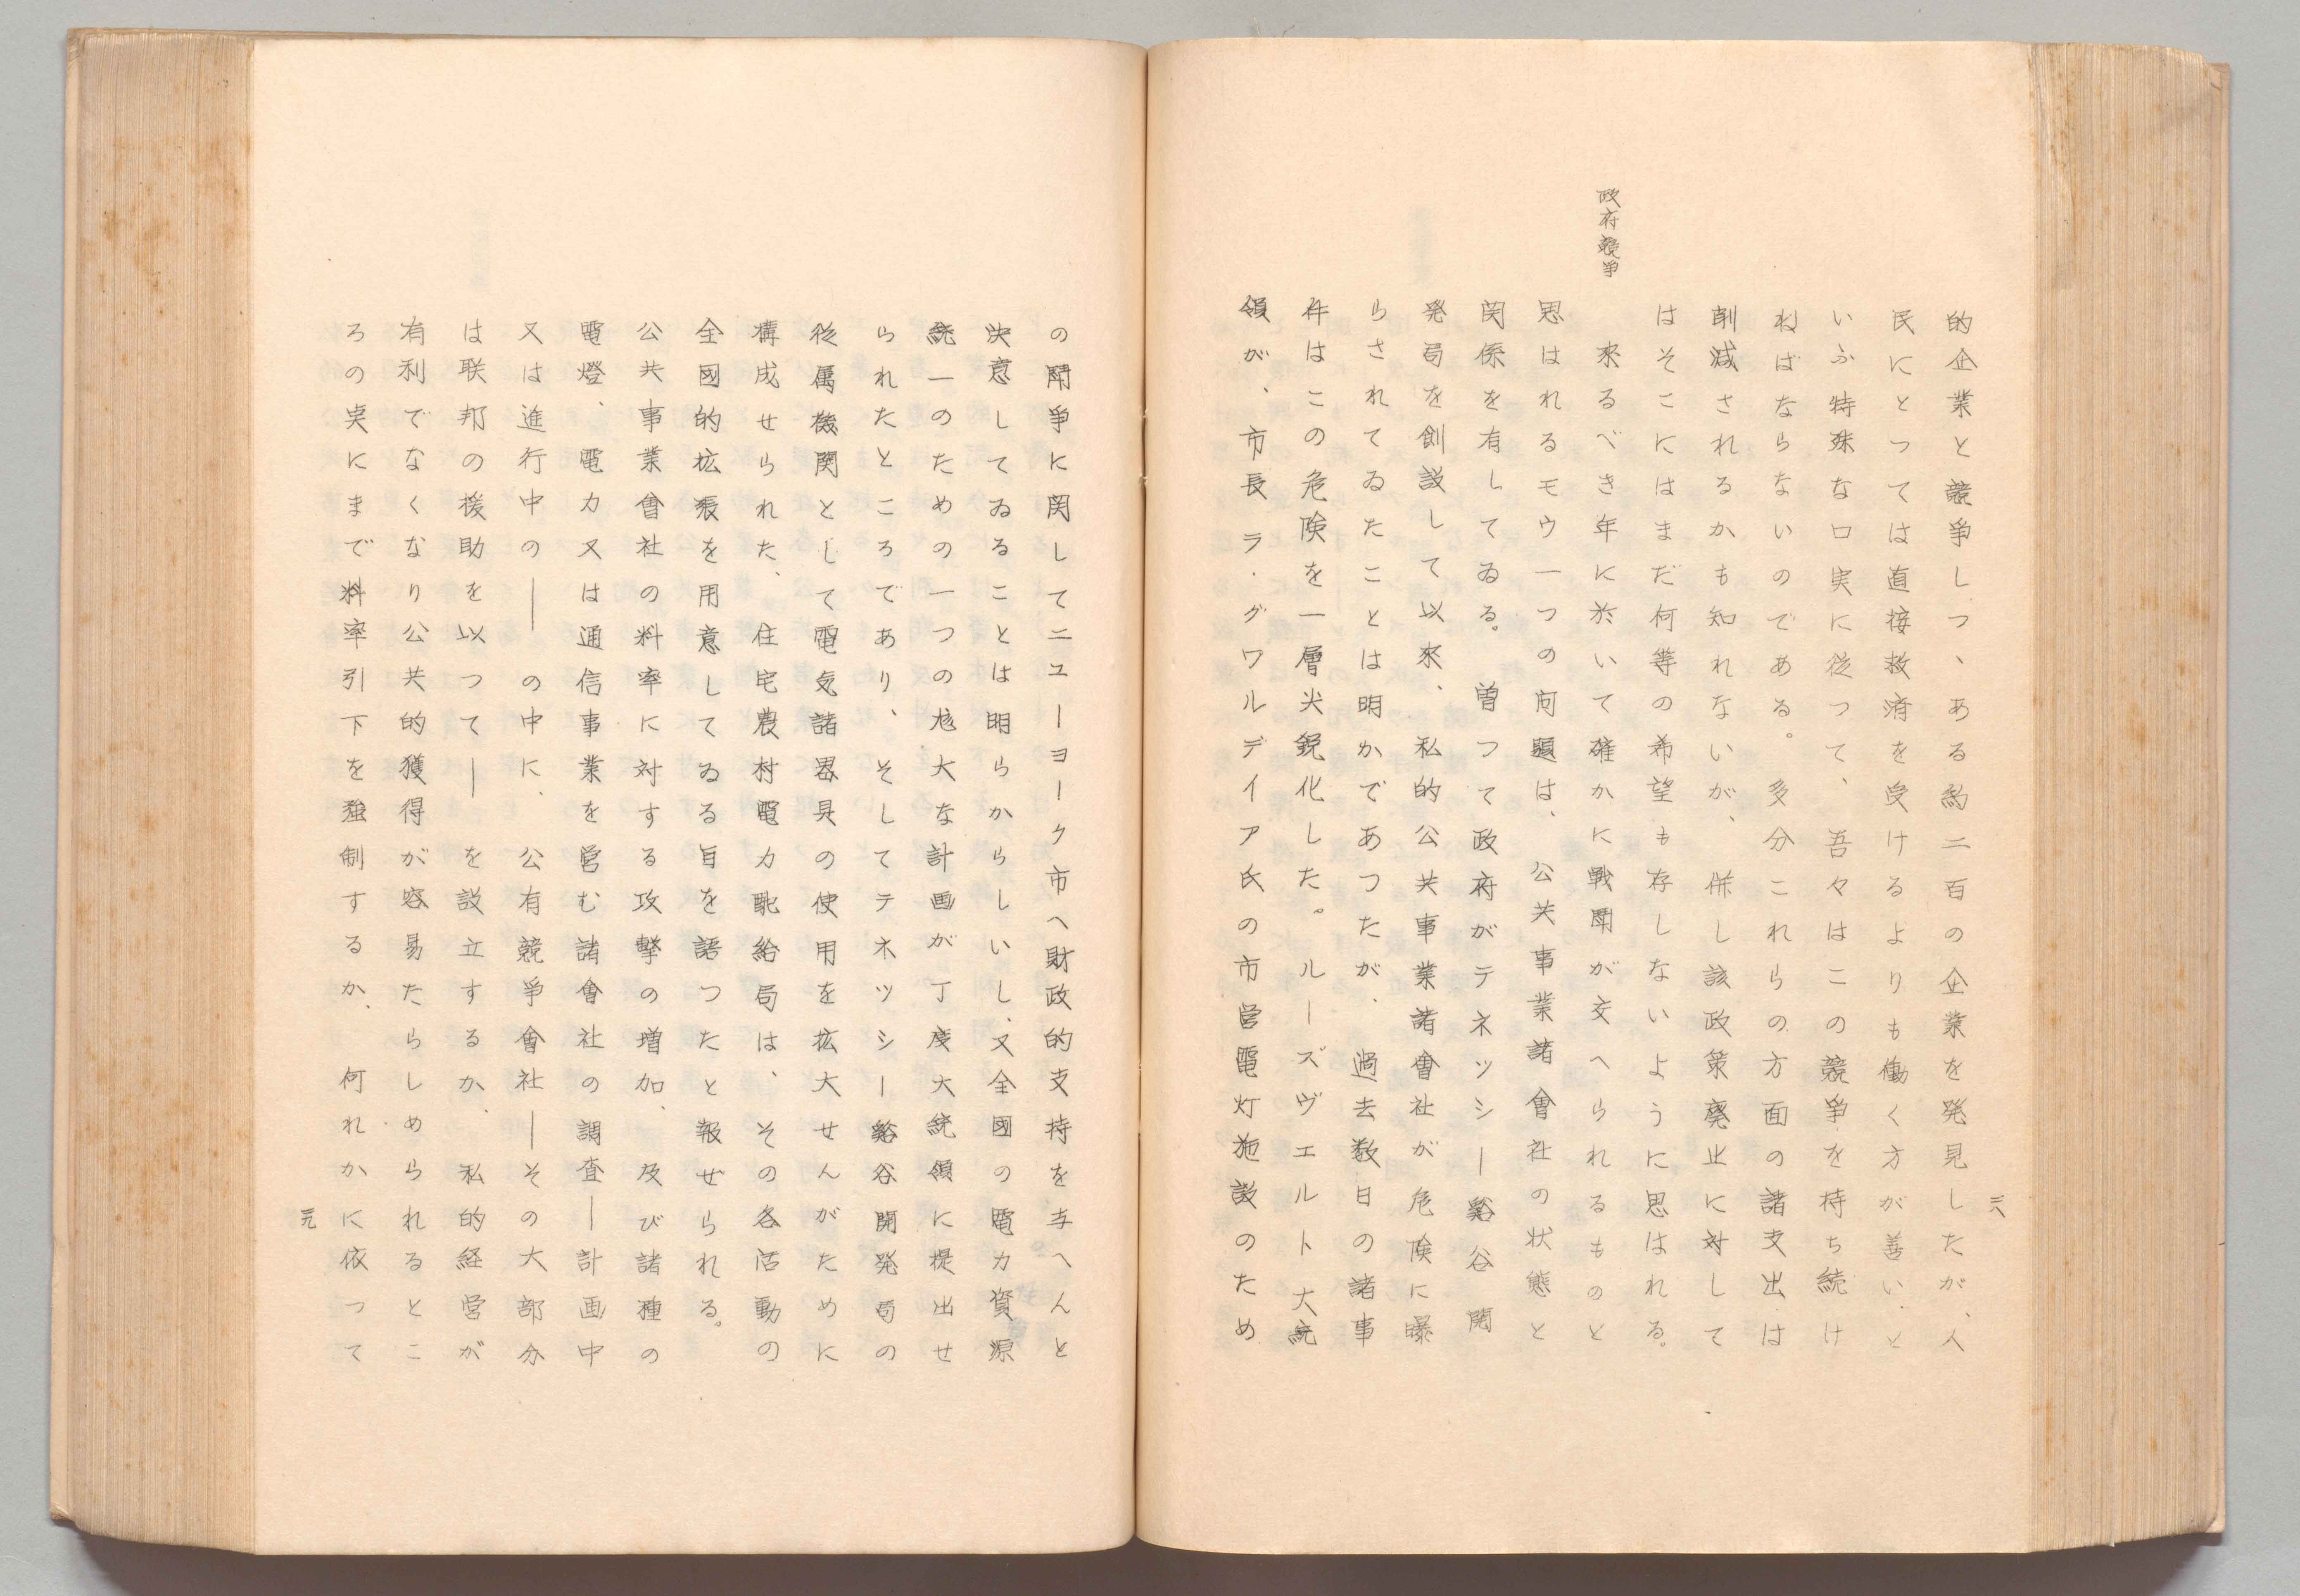 三八
的企業と競争しつゝある約二百の企業を発見したが、人
民にとつては直接救済を受けるよりも働く方が善い、と
いふ特殊な口実に従つて、吾々はこの競争を持ち続け
ねばならないのである。多分これらの方面の諸支出は
削減されるかも知れないが、併し該政策廃止に対して
はそこにはまだ何等の希望も存しないように思はれる。
政府競争
来るべき年に於いて確かに戦闘が交へられるものと
思はれるモウ一つの問題は、公共事業諸會社の状態と
関係を有してゐる。曽つて政府がテネツシー谿谷開
発局を創設して以来、私的公共事業諸會社が危険に曝
らされてゐたことは明かであつたが、過去数日の諸事
件はこの危険を一層尖鋭化した。ルーズヴエルト大統
領が、市長ラ・グワルデイア氏の市営電灯施設のため
の闘争に関してニユーヨーク市へ財政的支持を与へんと
決意してゐることは明らかららしいし、又全國の電力資源
統一のための一つの尨大な計画が丁度大統領に提出せ
られたところであり、そしてテネツシー谿谷開発局の
従属機関として電気諸器具の使用を拡大せんがために
構成せられた、住宅農村電力配給局は、その各活動の
全國的拡張を用意してゐる旨を語つたと報ぜられる。
公共事業會社の料率に対する攻撃の増加、及び諸種の
電燈、電力又は通信事業を営む諸會社の調査―計画中
又は進行中の―の中に、公有競争會社―その大部分
は联邦の援助を以つて―を設立するか、私的経営が
有利でなくなり公共的獲得が容易たらしめられるとこ
ろの実にまで料率引下を強制するか、何れかに依つて
三九